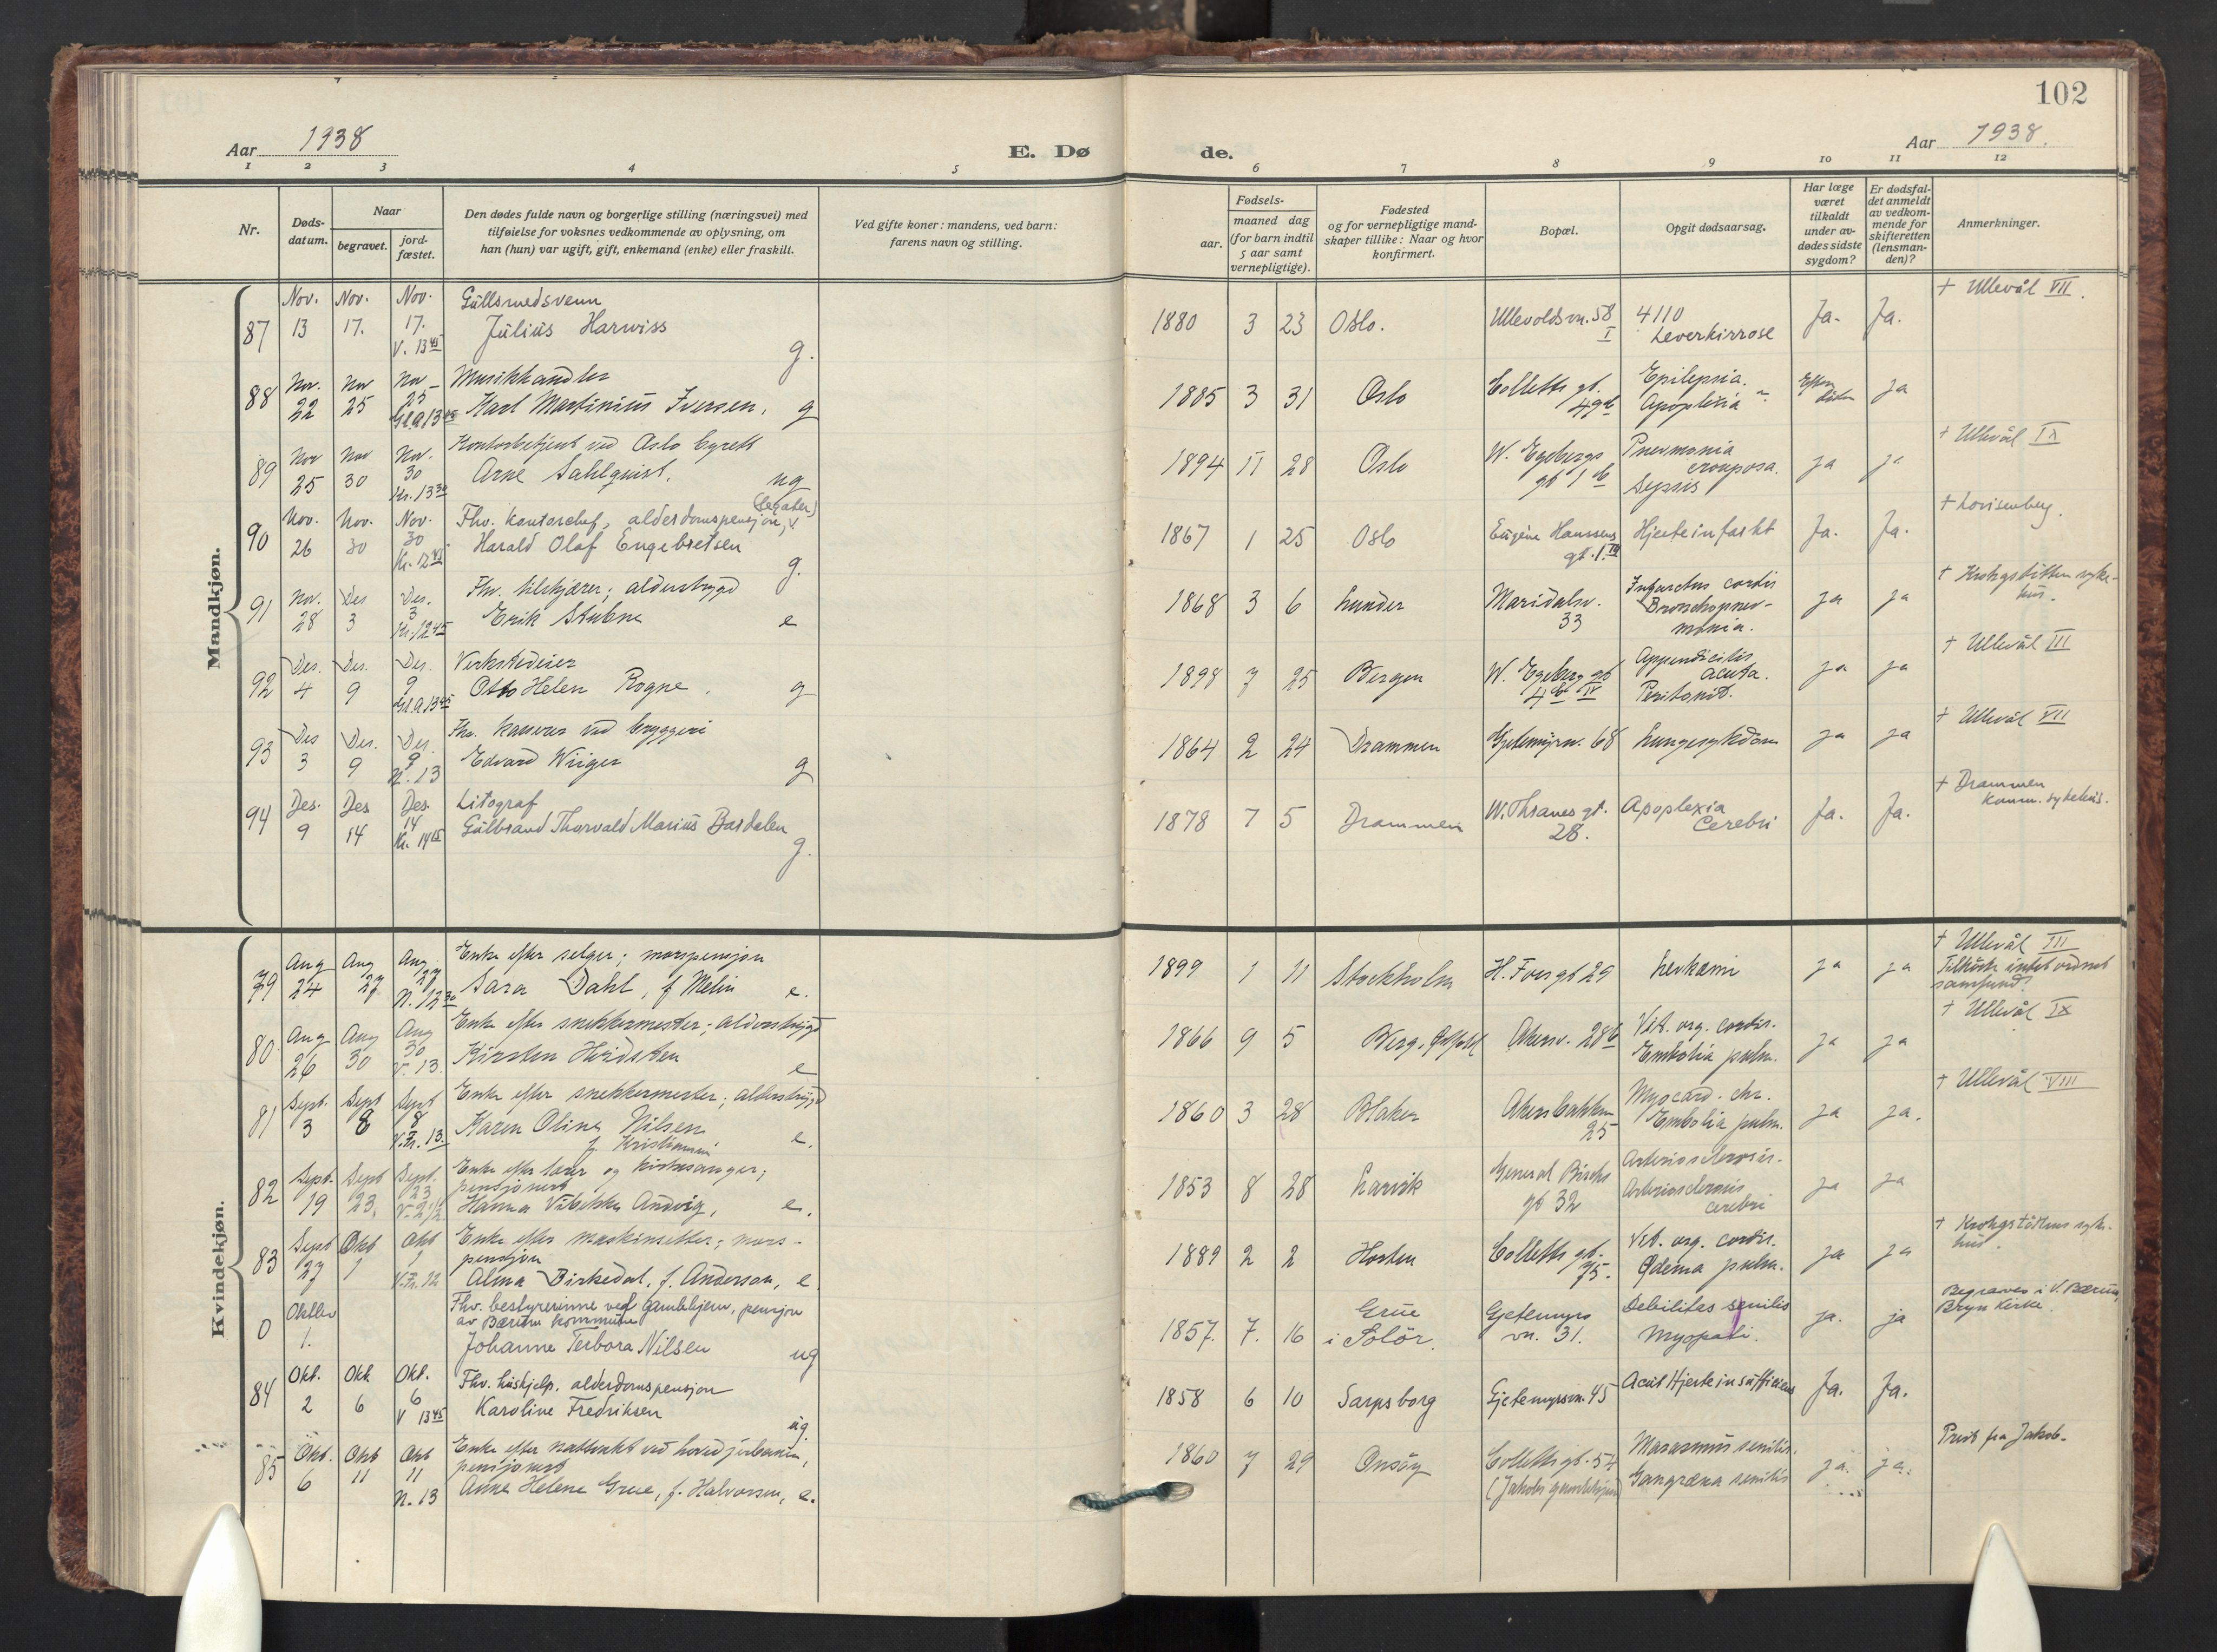 102
Aar 1938
E. Dø de.
Aar 1938.
1 2 3 4 5 6 7 8 9 10 11 12
Nr.
Døds-
datum.
Naar
begravet.
jord-
fæstet.
Den dødes fulde navn og borgerlige stilling (næringsvei) med
tilføielse for voksnes vedkommende av oplysning, om
han (hun) var ugift, gift, enkemand (enke) eller fraskilt.
Ved gifte koner: mandens, ved barn:
farens navn og stilling.
Fødsels-
aar.
maaned dag
(for barn indtil
5 aar samt
vernepligtige).
Fødested
og for vernepligtige mand-
skaper tillike: Naar og hvor
konfirmert.
Bopæl.
Opgit dødsaarsag.
Har læge
været
tilkaldt
under av-
dødes sidste
sygdom?
Er dødsfal-
det anmeldt
av vedkom-
mende for
skifteretten
(lensman-
den)?
Anmerkninger.
Mandkjøn.
87 Nov. 13 Nov. 17. Nov. 17. V. 13 45
Gullsmedsvenn
Julius Harwiss g.
1880 3 23 Oslo. Ullevoldsvn. 58 I 4110 Leverkirrose Ja. Ja. + Ullevål VII.
88 Nov. 22 Nov 25 Nov 25
Musikkhandler
Karl Martinius Iversen, g
1885 3 31 Oslo Colletts gt. 49b Epilepsia. Apoplexia ja
89 Nov 25 Nov 30 Nov. 30 Kr. 13 30
Kontorbetjent ved Oslo byrett
Arne Sahlquist. ug
1894 11 28 Oslo W. Egebergs gt 1b Pneumonia crouposa. Sepsis ja ja + Ullevål IX
90 Nov. 26 Nov. 30 Nov. 30 Kr. 12 45
Fhv. kontorchef, alderdomspensjon, (legater)
Harald Olaf Engebretsen g.
1867 1 25 Oslo Eugenie Hanssens gt. 1 III Hjerteinfarkt Ja. Ja. + Lovisenberg.
91 Nov. 28 Des 3 Des. 3 Kr. 12 45
Fhv. tilskjærer; alderstrygd
Erik Stubne e
1868 3 6 Lunder Maridalsv. 33 Infarctus cordis Bronchopneu-
monia. ja ja + Krohgstøtten syke-
hus.
92 Des. 4 Des. 9 Des. 9
Verkstedeier
Otto Helen Rogne. g
1898 7 25 Bergen W. Egeberg gt 4b IV Appendicitis acuta. Peritonit. ja ja + Ullevål III
93 Des 3 Des. 9 Des. 9 N. 13
Fhv. kasserer ved bryggeri
Edvard Wiiger g
1864 2 24 Drammen Gjetemyrsv. 68 Lungesykdom ja ja + Ullevål VII
94 Des. 9 Des 14 Des. 14 Kr. 14 15
Litograf
Gulbrand Thorvald Marius Bardalen g.
1878 7 5 Drammen W. Thranes gt. 28. Apoplexia Cerebri Ja. Ja. + Drammen
komm. sykehus.
Kvindekjøn.
79 Aug 24 Aug 27 Aug 27 N. 12 30
Enke efter selger; morspensjon
Sara Dahl, f Melin e.
1899 1 11 Stockholm H. Foss gt 29 Leukemi ja ja + Ullevål III
Tilhørte intet ordnet
samfund?
80 Aug 26 Aug 30 Aug 30 V. 13.
Enke efter snekkermester; alderstrygd
Kirsten Hvidsten e
1866 9 5 Berg, Østfold Akersv. 28b Vit. org. cordis. Embolia pulm. ja ja + Ullevål IX
81 Sept. 3 Sept 8 Sept 8 V.Fr. 13.
Enke efter snekkermester; alderstrygd
Karen Oline Nilsen
f. Kristiansen e.
1860 3 28 Blaker Akersbakken 25 Myocard. chr. Embolia pulm. ja ja. + Ullevål VIII
82 Sept. 19 Sept 23. Sept. 23 V. 2 1/2
Enke efter lærer og kirkesanger;
pensjonert
Hanna Vibekke Andvig, e.
1853 8 28 Larvik General Birchs gt 32 Arteriosclerosis. Arteriosclerosis cerebri ja ja
83 Sept 27 Okt 1 Okt 1 V.Fr. 12
Enke efter maskinsetter; mors-
pensjon
Alma Birkedal, f. Anderson, e
1889 2 2 Horten Colletts gt. 75. Vit. org. cordis. Ødema pulm. ja ja + Krohgstøttens syke-
hus.
0 Oktber 1.
Fhv. bestyrerinne ved gamlehjem, pensjon
av Bærum kommune
Johanne Terbora Nilsen ug
1857. 7. 16 Grue i Solör. Gjetemyrs vn. 31. Debilitas senilis Myopati. ja. ja Begraves i V. Bærum,
Bryn Kirke.
84 Okt. 2 Okt. 6 Okt. 6 V 13 45
Fhv. hushjelp, alderdomspensjon
Karoline Fredriksen ug.
1858 6 10 Sarpsborg Gjetemyrsvn. 45 Acut Hjerteinsufficiens Ja. Ja.
85 Okt. 6 Okt 11 Okt 11 N. 13
Enke efter nattvakt ved hovedjernbanen,
pensjonert
Anne Helene Grue, f. Halvorsen, e.
1860 7 29 Onsøy Colletts gt. 54 (Jakobs gamlehjem) Marasmus senilis. Gangræna senilis ja. ja. Prest fra Jakob.